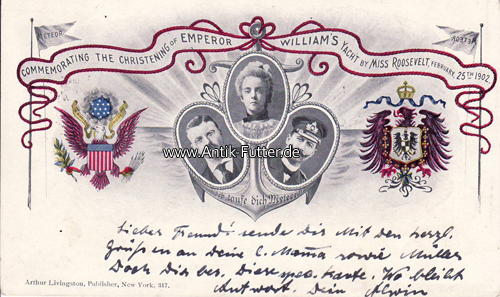 METEOR
METEOR
COMMEMORATING THE CHRISTENING OF EMPEROR WILLIAM'S YACHT BY MISS ROOSEVELT, FEBRUARY 25TH 1902.
www.Antik-Futter.de
taufe dich Meteor
Lieber Freund! sende Dir Mit den herzl.
Grüssen an Deine l. Mama sowie Müller
Doch Dir bes. Diese Karte. Wo bleibt
Antwort. Dein Alwin
Arthur Livingston, Publisher, New York. 317.